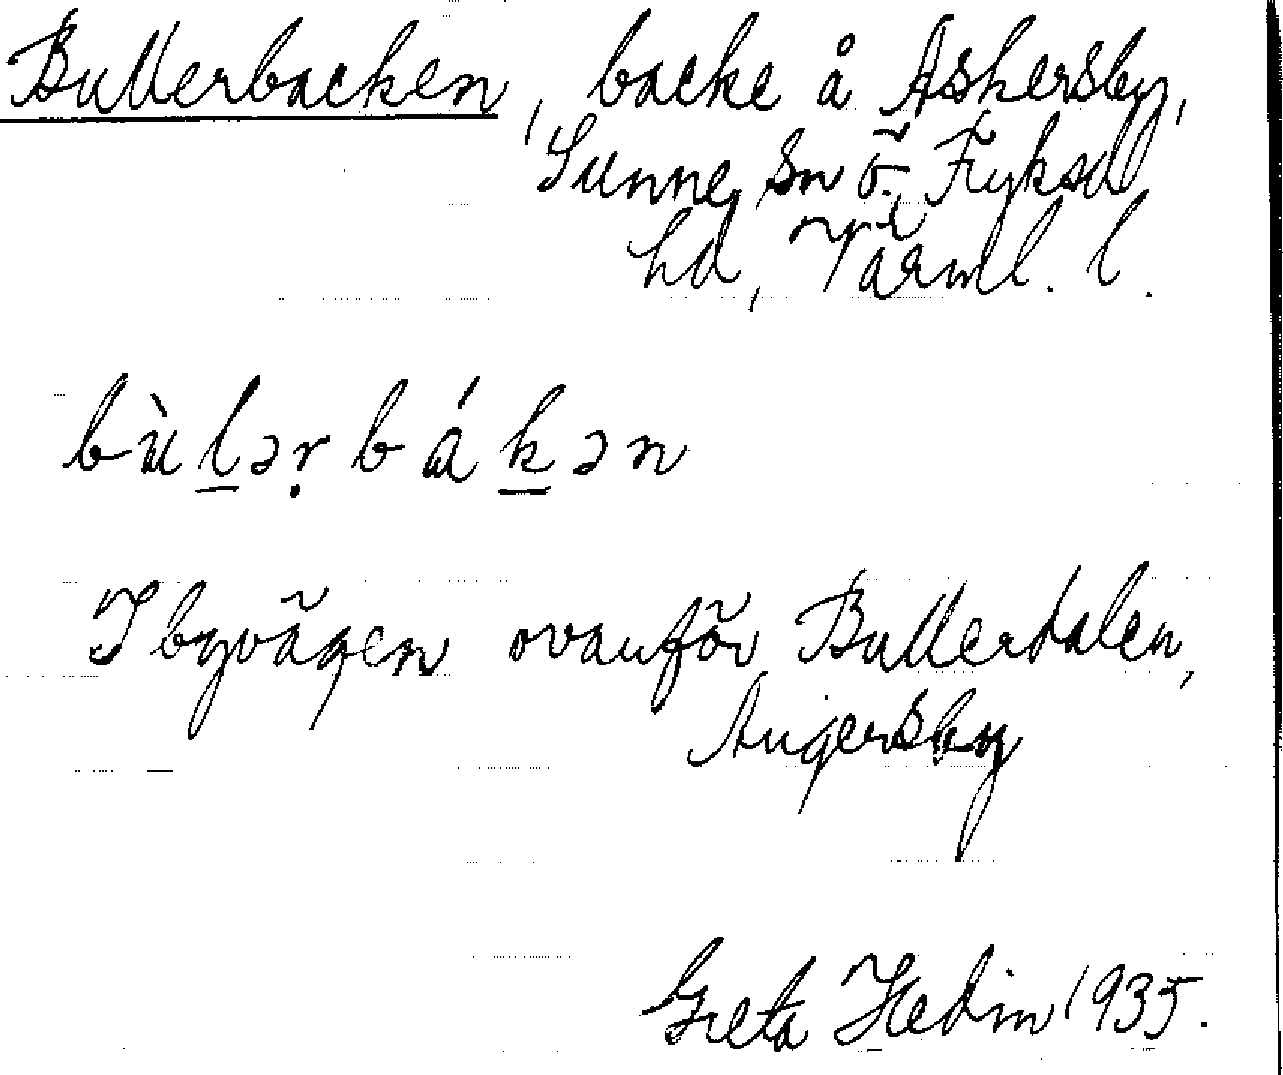 Bullerbacken, backe å Askersby,
Sunne sn Ö. Fryksd
hd, Värml. l.
bùl̲ər̩ bák̲ən
I byvägen ovanför Bullerdalen,
Angersby
Greta Hedin 1935.